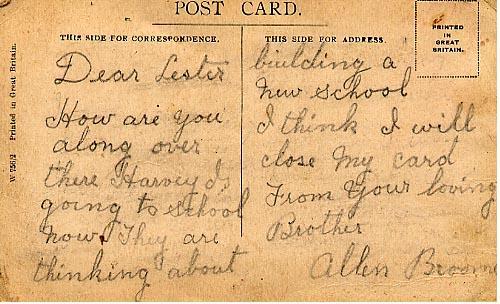 POST CARD.
THIS SIDE FOR CORRESPONDENCE.
THIS SIDE FOR ADDRESS.
PRINTED
IN
GREAT
BRITAIN.
W 755/2 Printed in Great Britain.
Dear Lester
How are you
along over
there Harvey is
going to school
now. They are
thinking about
building a
new school
I think I will
close My card
From Your loving
Brother
Allen Broome